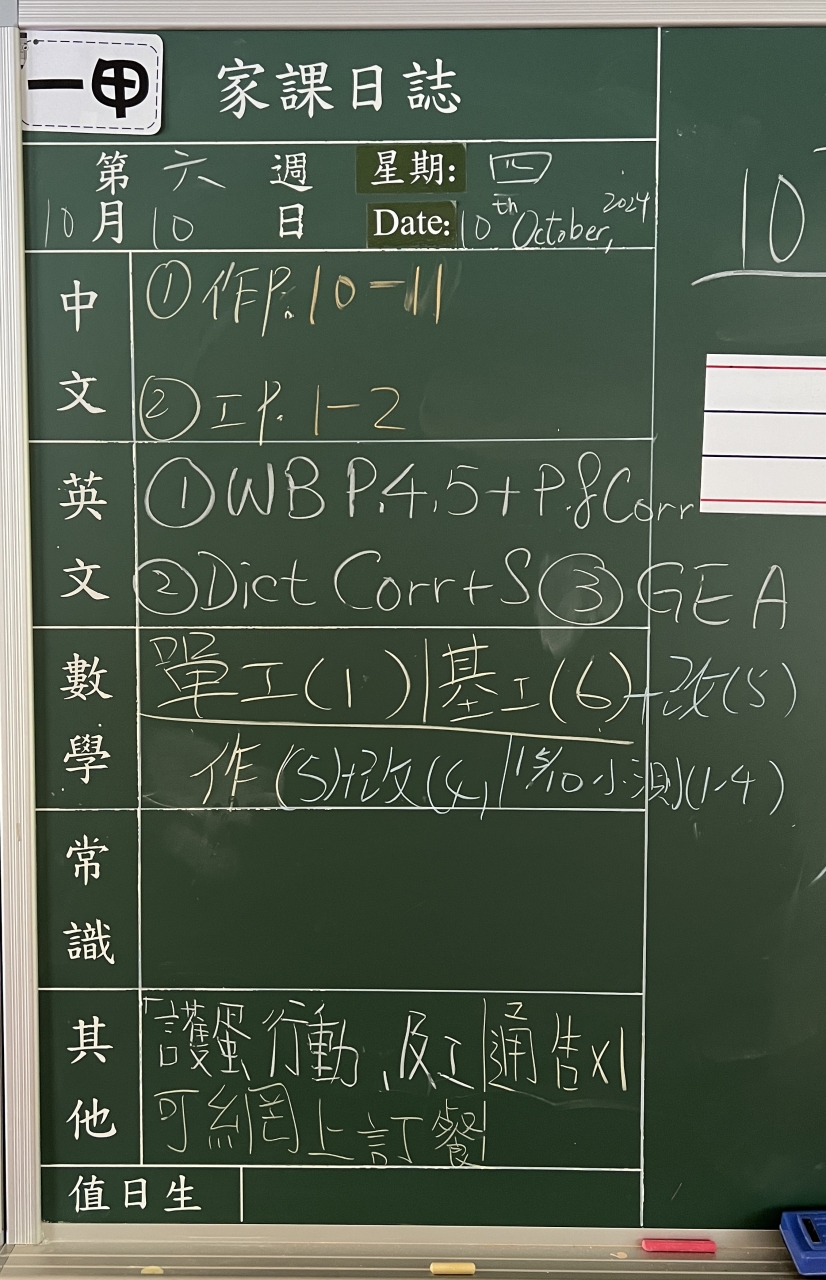 一甲
家課日誌
第 六 週 星期: 四
10 月 10 日 Date: 10th October, 2024
10
中文
① 作P.10-11
② 工P.1-2
英文
① WB P.4,5+P.8Corr
② Dict Corr+S ③ GE A
數學
單工(1)|基工(6)+改(5)
作(5)+改(4)|15/10小測(1-4)
常識
其他
「護蛋行動」反工|通告x1
可網上訂餐
值日生